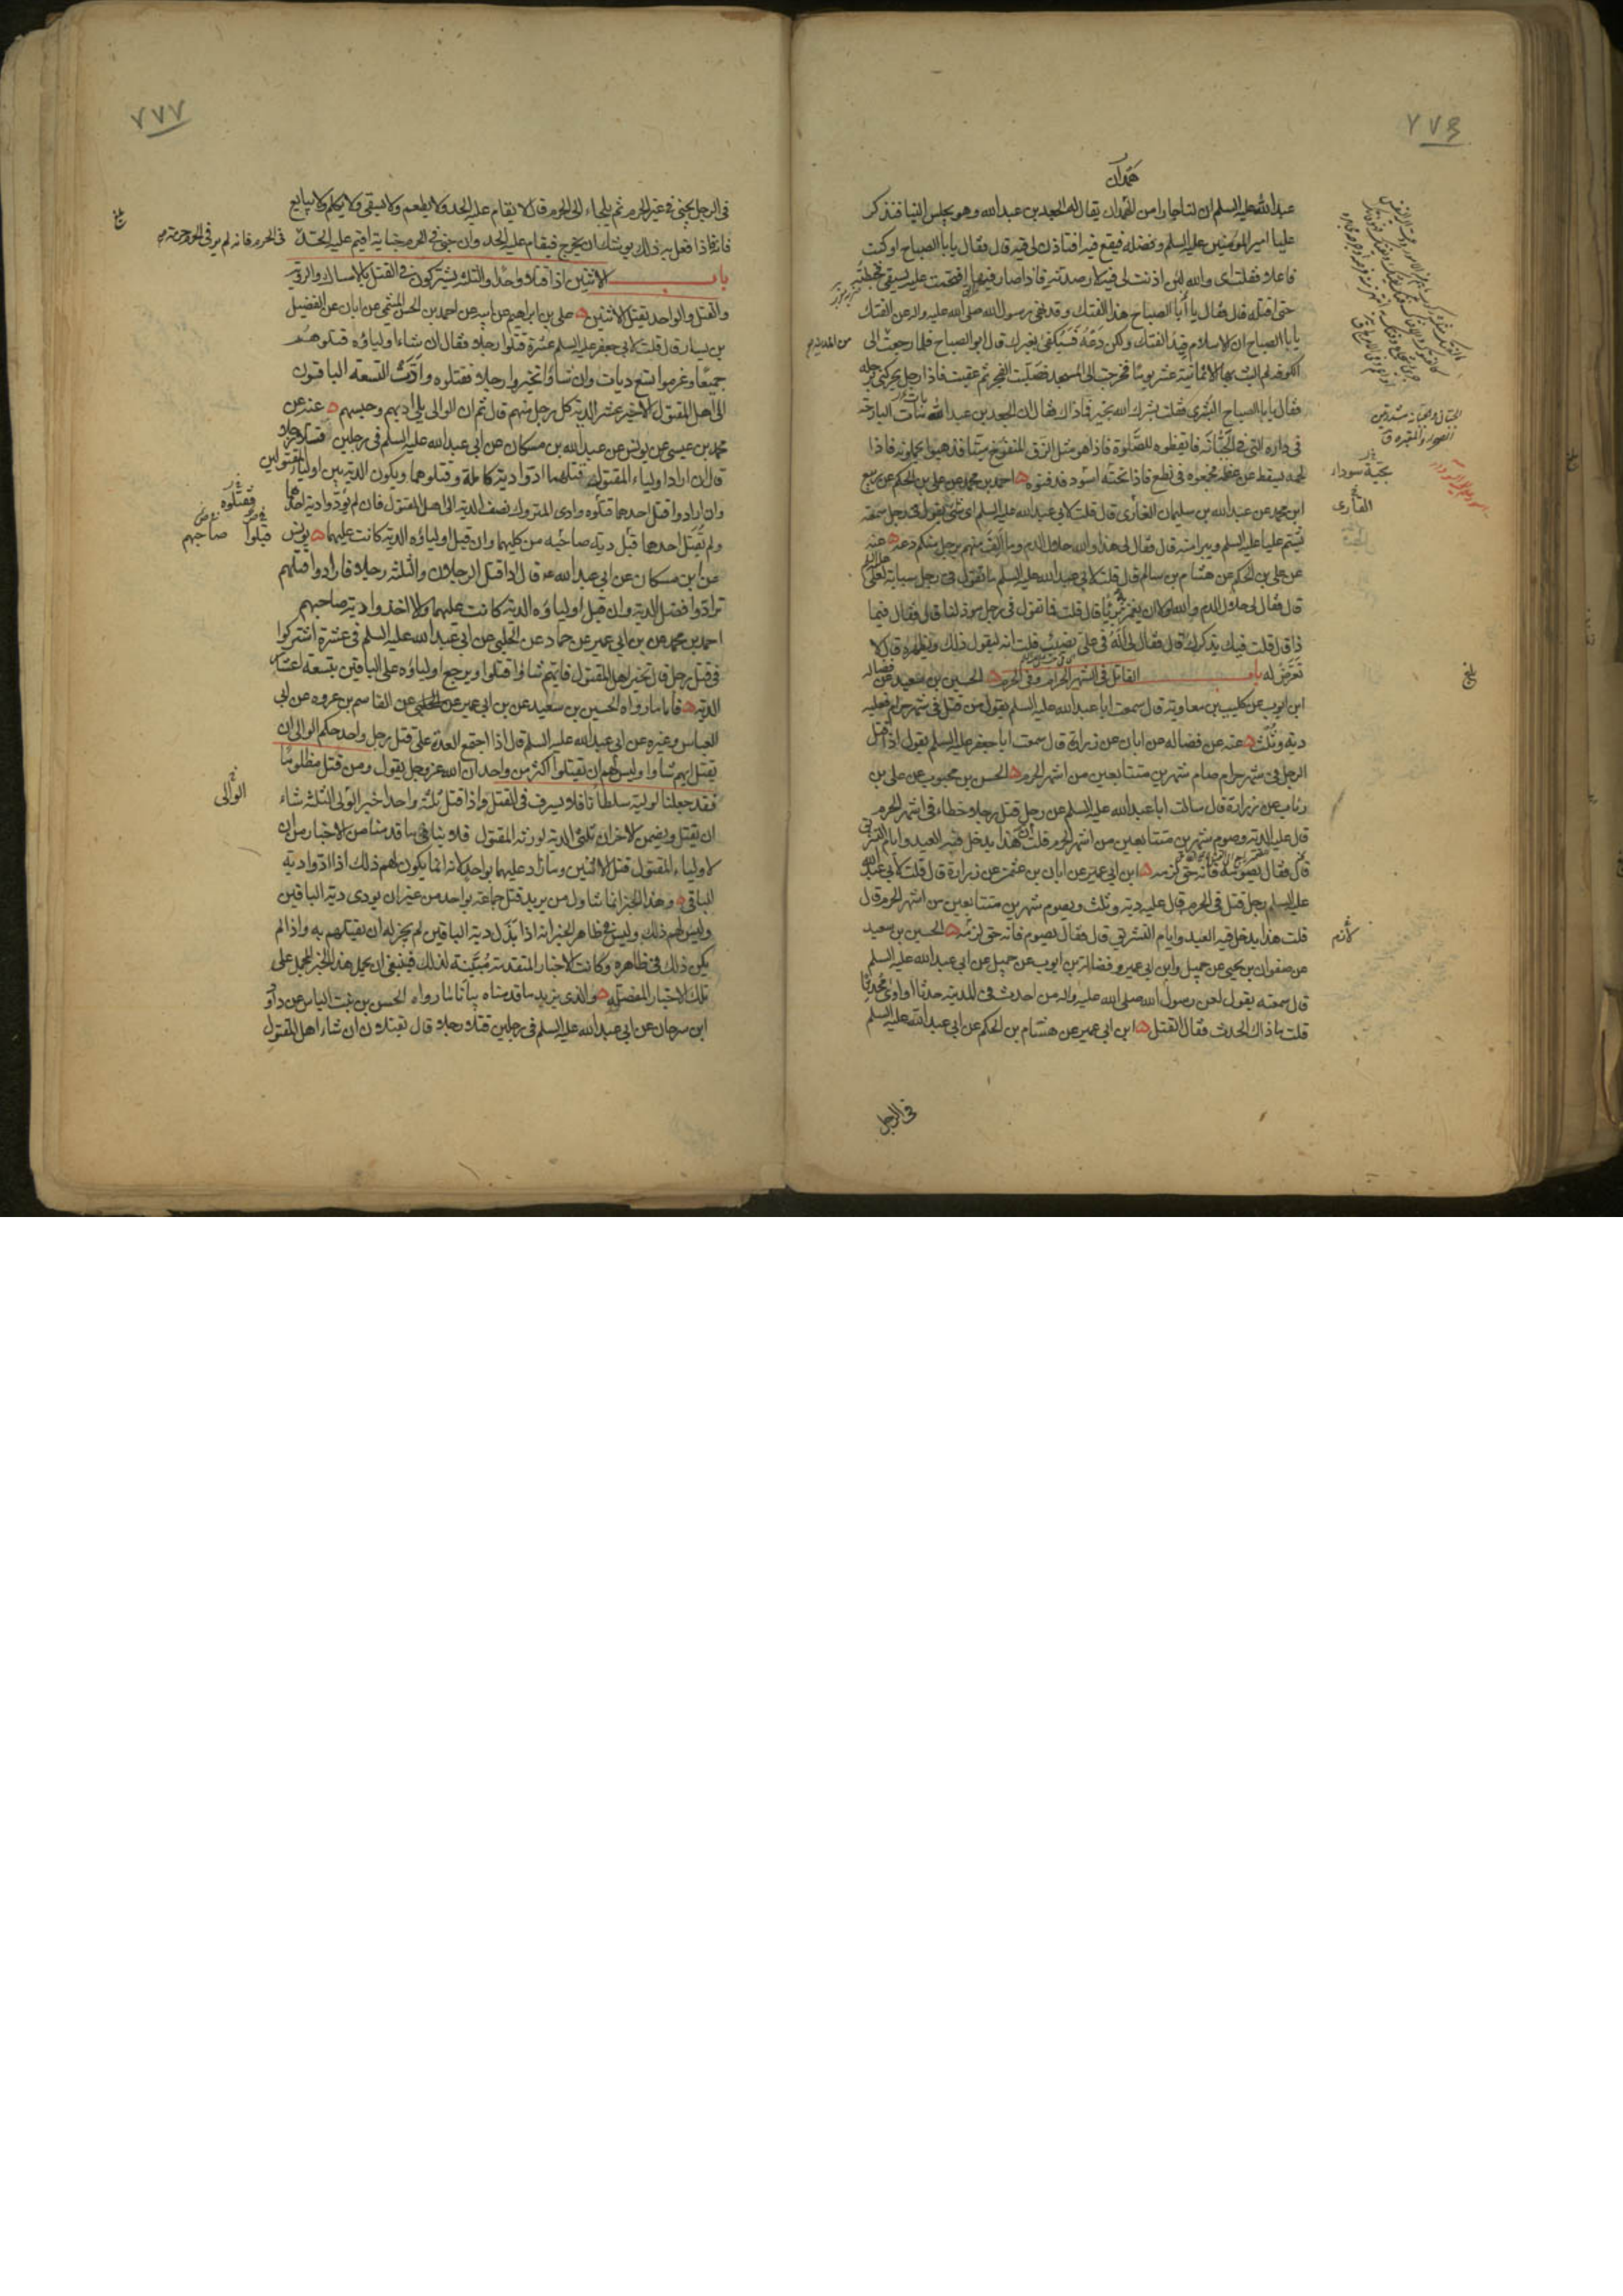 ٧٧٦
همدان
عبدالله عليه السلم ان لنا جارا من همدان يقال له الجعد بن عبد الله وهو يجلس الينا فنذكر
عليا امير المؤمنين عليه السلم وفضله فيقع فيه افتاذن لي فيه قال فقال يا با الصباح اوكنت
فاعلا فقلت اى والله لئن اذنت لى فيه لارصدنه فاذا صار فيها اقتحمت عليه بسيفى فخبطته
حتى اقتله قال فقال يا أبا الصباح هذا الفتك وقد نهى رسول الله صلى الله عليه واله عن الفتك
يا با الصباح ان الاسلام قيد الفتك ولكن دعه فستكفى بغيرك قال ابو الصباح فلما رجعت الى
الكوفه لم البث بها الا ثمانية عشر يوما فخرجت الى المسجد فصليت الفجر ثم عقبت فاذا رجل يحركنى برجله
فقال يا با الصباح البشرى فقلت بشرك الله بخير فما ذاك فقال ان الجعد بن عبد الله بات البارحة
فى داره التى فى الجبّانه فايقظوه للصلوة فاذا هو مثل الزق المنفوخ ميتا فذهبوا يحملونه فاذا
لحمه يسقط عن عظمه فجمعوه فى نطع فاذا تحته اسود فدفنوه احمد بن محمد عن على بن الحكم عن ربيع
ابن محمد عن عبد الله بن سليمان العامرى قال قلت لابى عبد الله عليه السلم اى شئ تقول فى رجل سمعته
يشتم عليا عليه السلم ويبرا منه قال فقال لى هذا والله حلال الدم وما الف منهم برجل منكم دعه عنه
عن على بن الحكم عن هشام بن سالم قال قلت لابى عبد الله عليه السلم ما تقول فى رجل سبابة لعلى
قال فقال لى حلال الدم والله لولا ان يغمز بريئا قال قلت فما تقول فى رجل موذ لنا قال فقال فيما
ذا قال قلت فيك يذكرك قال فقال لى اله فى على نصيب قلت انه ليقول ذلك ويظهره قال لا
تعرض له باب القاتل فى الشهر الحرام وفى الحرم الحسين بن سعيد عن فضاله
ابن ايوب عن كليب بن معاويه قال سمعت ابا عبد الله عليه السلم يقول من قتل فى شهر حرام فعليه
ديه وثلث عنه عن فضاله عن ابان عن زرارة قال سمعت ابا جعفر عليه السلم يقول اذا قتل
الرجل فى شهر حرام صام شهرين متتابعين من اشهر الحرم الحسن بن محبوب عن على بن
رئاب عن زرارة قال سالت ابا عبد الله عليه السلم عن رجل قتل رجلا خطاء فى اشهر الحرم
قال عليه الديه وصوم شهرين متتابعين من اشهر الحرم قلت ان هذا يدخل فيه العيد وايام التشريق
قال فقال يصومه فانه حق لزمه ابن ابى عمير عن ابان بن عثمن عن زرارة قال قلت لابى عبد الله
عليه السلم رجل قتل فى الحرم قال عليه ديه وثلث ويصوم شهرين متتابعين من اشهر الحرم قال
قلت هذا يدخل فيه العيد وايام التشريق قال فقال يصوم فانه حق لزمه الحسين بن سعيد
عن صفوان بن يحيى عن جميل وابن ابى عمير وفضالة بن ايوب عن جميل عن ابى عبد الله عليه السلم
قال سمعته يقول لعن رسول الله صلى الله عليه واله من احدث فى المدينه حدثا او اوى محدثا
قلت ما ذاك الحدث فقال القتل ابن ابى عمير عن هشام بن الحكم عن ابى عبد الله عليه السلم
فى الرجل
بجبة سوداء
لازم
بلغ
٧٧٧
فى الرجل يجنى فى غير الحرم ثم يلجاء الى الحرم قال لا يقام عليه الحد ولا يطعم ولا يسقى ولا يكلم ولا يبايع
فانه اذا فعل به ذلك يوشك ان يخرج فيقام عليه الحد وان جنى فى الحرم جناية اقيم عليه الحد فى الحرم فانه لم ير فى الحرم حرمة
باب الاثنين اذا قتلا واحدا والثلثه يشتركون فى القتل بالامساك والرؤيه
والقتل والواحد يقتل الاثنين على بن ابراهيم عن ابيه عن احمد بن الحسن الميثمى عن ابان عن الفضيل
بن يسار قال قلت لابى جعفر عليه السلم عشرة قتلوا رجلا فقال ان شاء اولياؤه قتلوهم
جميعا وغرموا تسع ديات وان شاؤا تخيروا رجلا فقتلوه وادّت التسعة الباقون
الى اهل المقتول الاخير عشر الدية كل رجل منهم قال ثم ان الوالى يلى ادبهم وحبسهم عنه عن
محمد بن عيسى عن يونس عن عبد الله بن مسكان عن ابى عبد الله عليه السلم فى رجلين قتلا رجلا
قال ان اراد اولياء المقتول قتلهما ادّوا دية كاملة وقتلوهما ويكون الديه بين اولياء المقتولين
وان ارادوا قتل احدهما قتلوه وادى المتروك نصف الديه الى اهل المقتول فان لم يؤدوا دية احدهما
ولم يقتل احدهما قبل ديته صاحبه من كليهما وان قبل اولياؤه الديه كانت عليهما يونس
عن ابن مسكان عن ابى عبد الله ع قال اذا قتل الرجلان والثلثه رجلا فارادوا قتلهم
ترادوا فضل الديه وان قبل اولياؤه الديه كانت عليهما والا اخذوا دية صاحبهم
احمد بن محمد عن بن ابى عمير عن حماد عن الحلبى عن ابى عبد الله عليه السلم فى عشرة اشتركوا
فى قتل رجل قال تخير اهل المقتول فايهم شاؤا قتلوا ويرجع اولياؤه على الباقين بتسعة اعشار
الديه فاما ما رواه الحسين بن سعيد عن بن ابى عمير عن القاسم بن عروه عن ابى
العباس وغيره عن ابى عبد الله عليه السلم قال اذا اجتمع العدة على قتل رجل واحد حكم الوالى ان
يقتل ايهم شاوا وليس لهم ان يقتلوا اكثر من واحد ان الله عز وجل يقول ومن قتل مظلوما
فقد جعلنا لوليه سلطانا فلا يسرف فى القتل واذا قتل ثلثة واحدا خير الوالى الثلثة شاء
ان يقتل ويضمن الاخران ثلثى الديه لورثه المقتول فلا ينافى ما قدمنا من الاخبار من ان
لاولياء المقتول قتل الاثنين وما زاد عليهما بواحد لانه انما يكون لهم ذلك اذا ادوا دية
الباقى وهذا الخبر انما تناول من يريد قتل جماعة بواحد من غير ان يودى دية الباقين
وليس لهم ذلك وليس فى ظاهر الخبر انه اذا بذل دية الباقين لم يجز له ان يقتلهم به واذا لم
يكن ذلك فى ظاهره وكانت الاخبار المتقدمة مبيّنة لذلك فينبغى ان يحمل هذا الخبر المجمل على
تلك الاخبار المفصله والذى يزيد ما قدمناه بيانا ما رواه الحسن بن بنت الياس عن داود
ابن سرحان عن ابى عبد الله عليه السلم فى رجلين قتلا رجلا قال يقتلان ان شاء اهل المقتول
بلغ
فقتلوه
قبلوا
صاحبهم
الوالى